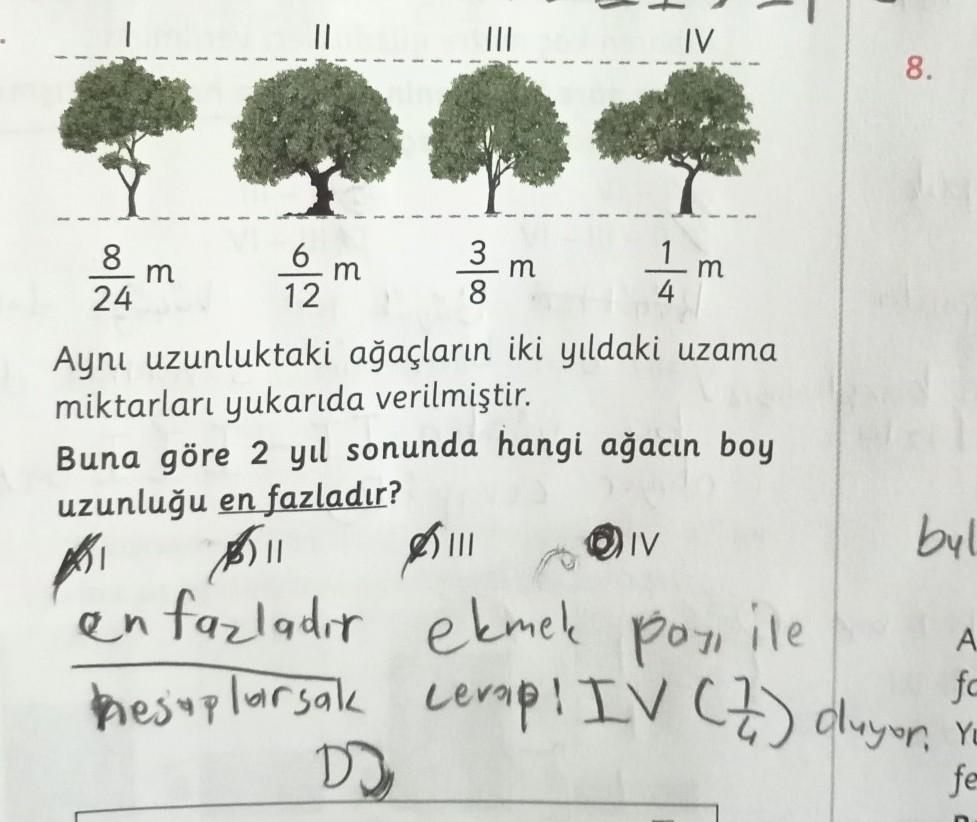 I II III IV
8.
8/24 m 6/12 m 3/8 m 1/4 m
Aynı uzunluktaki ağaçların iki yıldaki uzama
miktarları yukarıda verilmiştir.
Buna göre 2 yıl sonunda hangi ağacın boy
uzunluğu en fazladır?
A) I B) II C) III D) IV
bul
en fazladır ekmek payı ile
hesaplarsak cevap! IV (1/4) oluyor.
D)
A
fa
Yu
fe